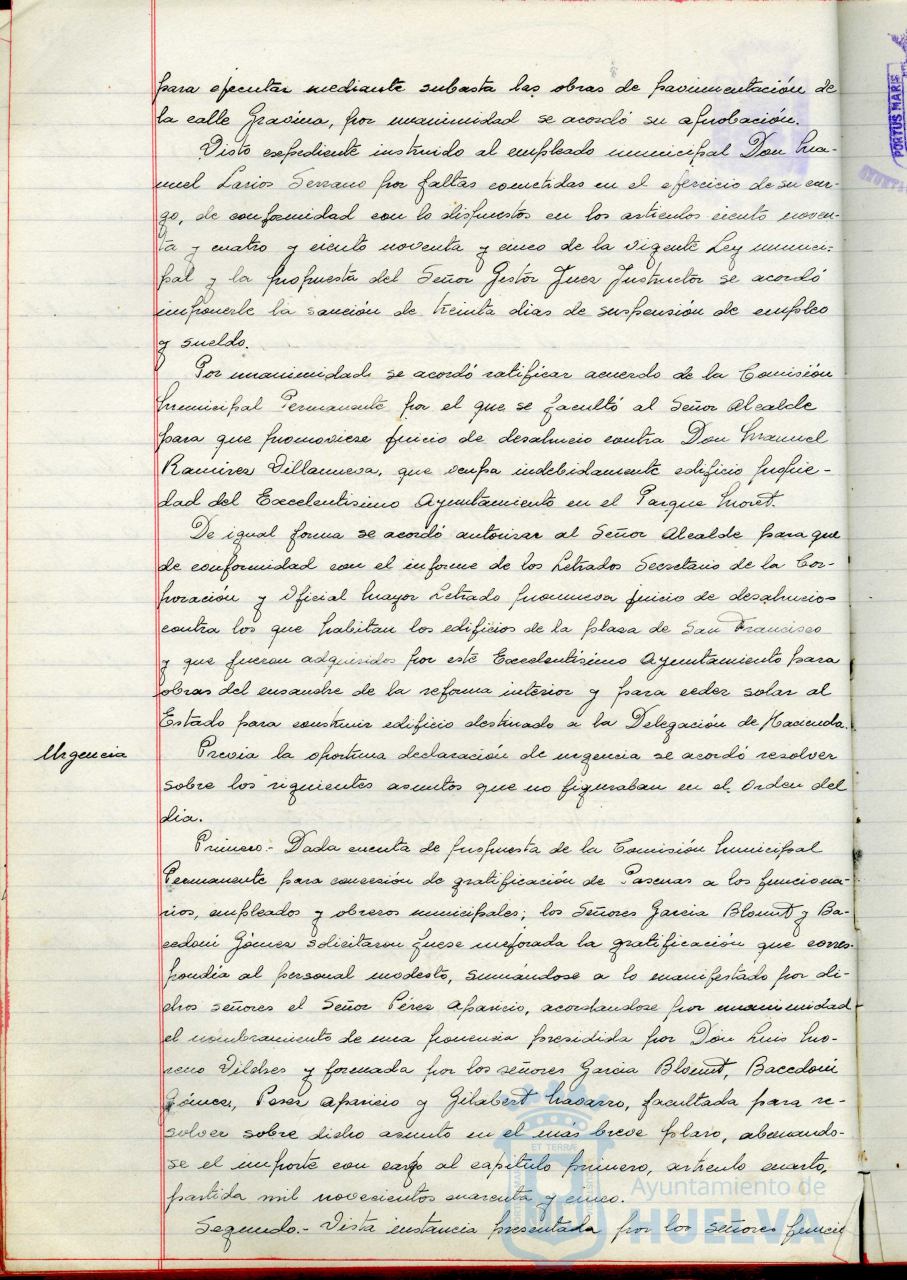 para ejecutar mediante subasta las obras de pavimentación de
la calle Gravina, por unanimidad se acordó su aprobación.
Visto expediente instruido al empleado municipal Don Ma-
nuel Larios Serrano por faltas cometidas en el ejercicio de su car-
go, de conformidad con lo dispuestos en los artículos ciento noven-
ta y cuatro y ciento noventa y cinco de la vigente Ley munici-
pal y la propuesta del Señor Gestor Juez Instructor se acordó
imponerle la sanción de treinta dias de suspensión de empleo
y sueldo.
Por unanimidad se acordó ratificar acuerdo de la Comisión
Municipal Permanente por el que se facultó al Señor Alcalde
para que promoviese juicio de desahucio contra Don Manuel
Ramirez Villanueva, que ocupa indebidamente edificio propie-
dad del Excelentisimo Ayuntamiento en el Parque Moret.
De igual forma se acordó autorizar al Señor Alcalde para que
de conformidad con el informe de los Letrados Secretario de la Cor-
poración y Oficial Mayor Letrado promueva juicio de desahucios
contra los que habitan los edificios de la plaza de San Francisco
y que fueron adquiridos por este Excelentisimo Ayuntamiento para
obras del ensanche de la reforma interior y para ceder solar al
Estado para construir edificio destinado a la Delegación de Hacienda.
Urgencia
Previa la oportuna declaración de urgencia se acordó resolver
sobre los siguientes asuntos que no figuraban en el Orden del
dia.
Primero.- Dada cuenta de propuesta de la Comisión Municipal
Permanente para concesión de gratificación de Pascuas a los funciona-
rios, empleados y obreros municipales; los Señores Garcia Blomt y Ba-
cedoni Gómez solicitaron fuese mejorada la gratificación que corres-
pondia al personal modesto, sumándose a lo manifestado por di-
chos señores el Señor Pérez Aparicio, acordandose por unanimidad
el nombramiento de una ponencia presidida por Don Luis Mo-
reno Vildses y formada por los señores Garcia Blomt, Bacedoni
Gómez, Perez Aparicio y Gilabert Navarro, facultada para re-
solver sobre dicho asunto en el mas breve plazo, abonando-
se el importe con cargo al capítulo primero, artículo cuarto,
partida mil novecientos cuarenta y cinco.
Segundo.- Vista instancia presentada por los señores funcio
PORTUS MARIS
ET TERRÆ
Ayuntamiento de
HUELVA